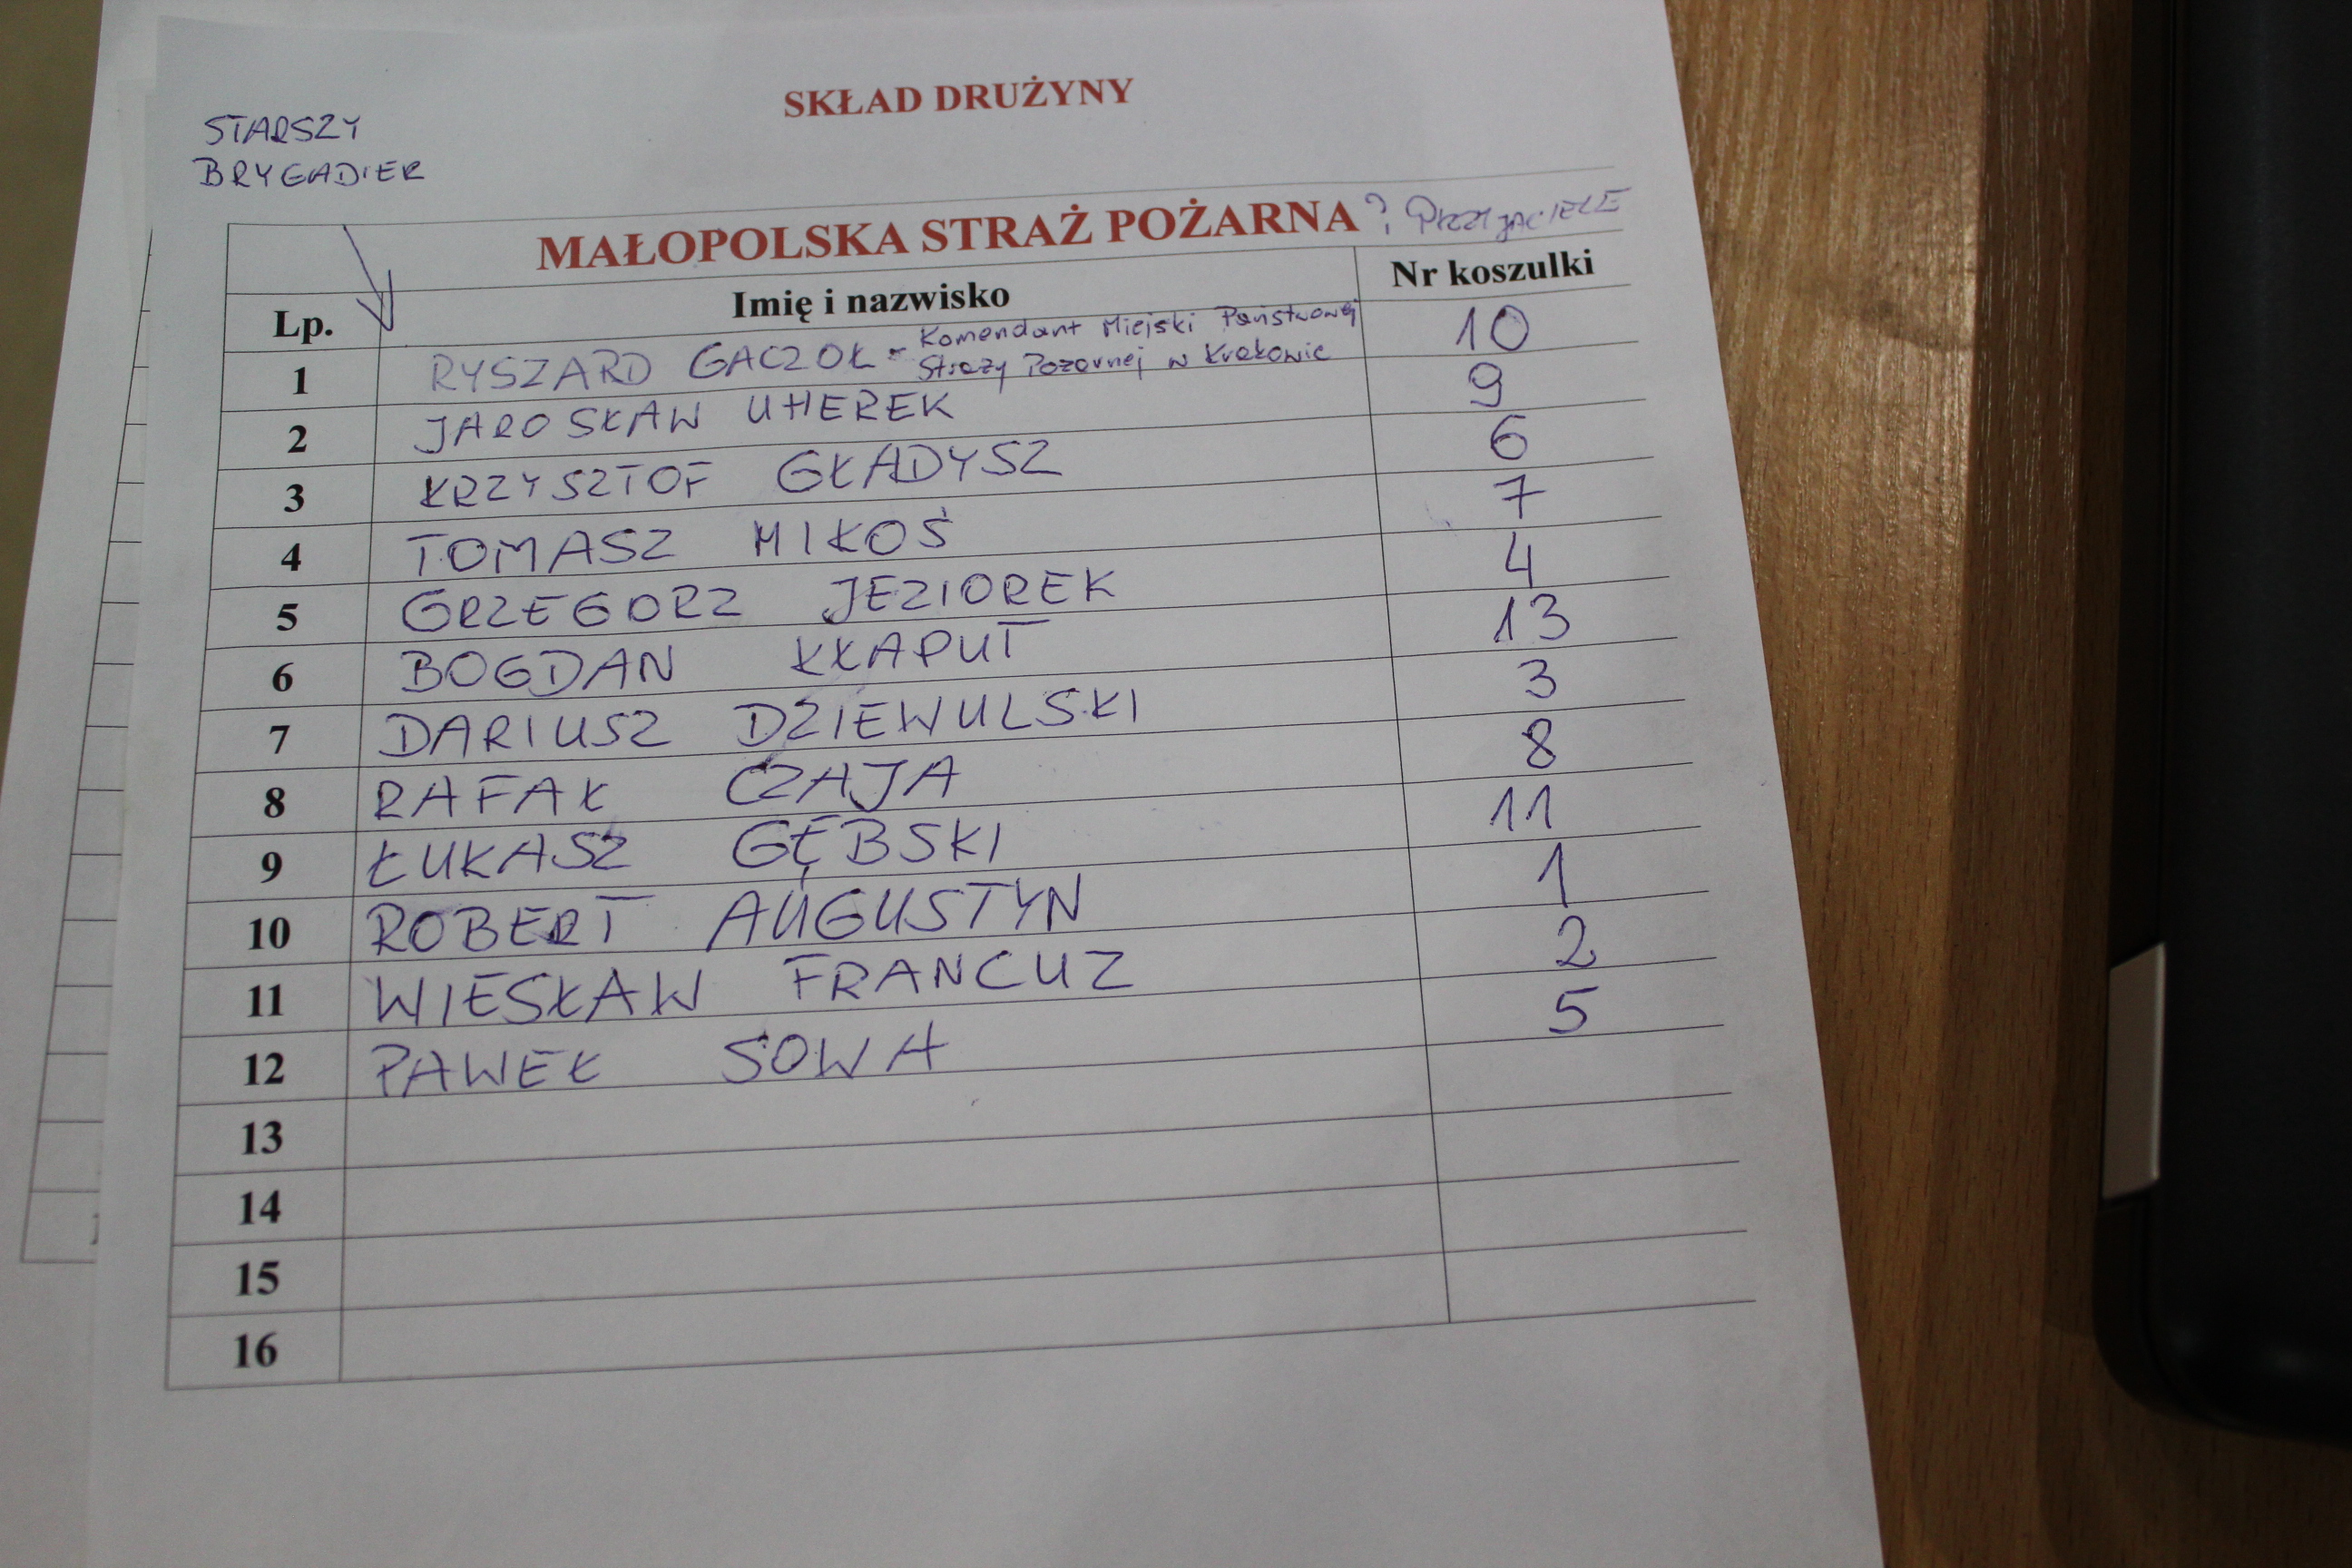 SKŁAD DRUŻYNY
STARSZY
BRYGADIER
MAŁOPOLSKA STRAŻ POŻARNA PRZYJACIELE
Lp. Imię i nazwisko Nr koszulki
1 RYSZARD GACZOŁ - Komendant Miejski Państwowej Straży Pożarnej w Krakowie 10
2 JAROSŁAW UHEREK 9
3 KRZYSZTOF GŁADYSZ 6
4 TOMASZ MIKOŚ 7
5 GRZEGORZ JEZIOREK 4
6 BOGDAN KŁAPUT 13
7 DARIUSZ DZIEWULSKI 3
8 RAFAŁ CZAJA 8
9 ŁUKASZ GĘBSKI 11
10 ROBERT AUGUSTYN 1
11 WIESŁAW FRANCUZ 2
12 PAWEŁ SOWA 5
13
14
15
16